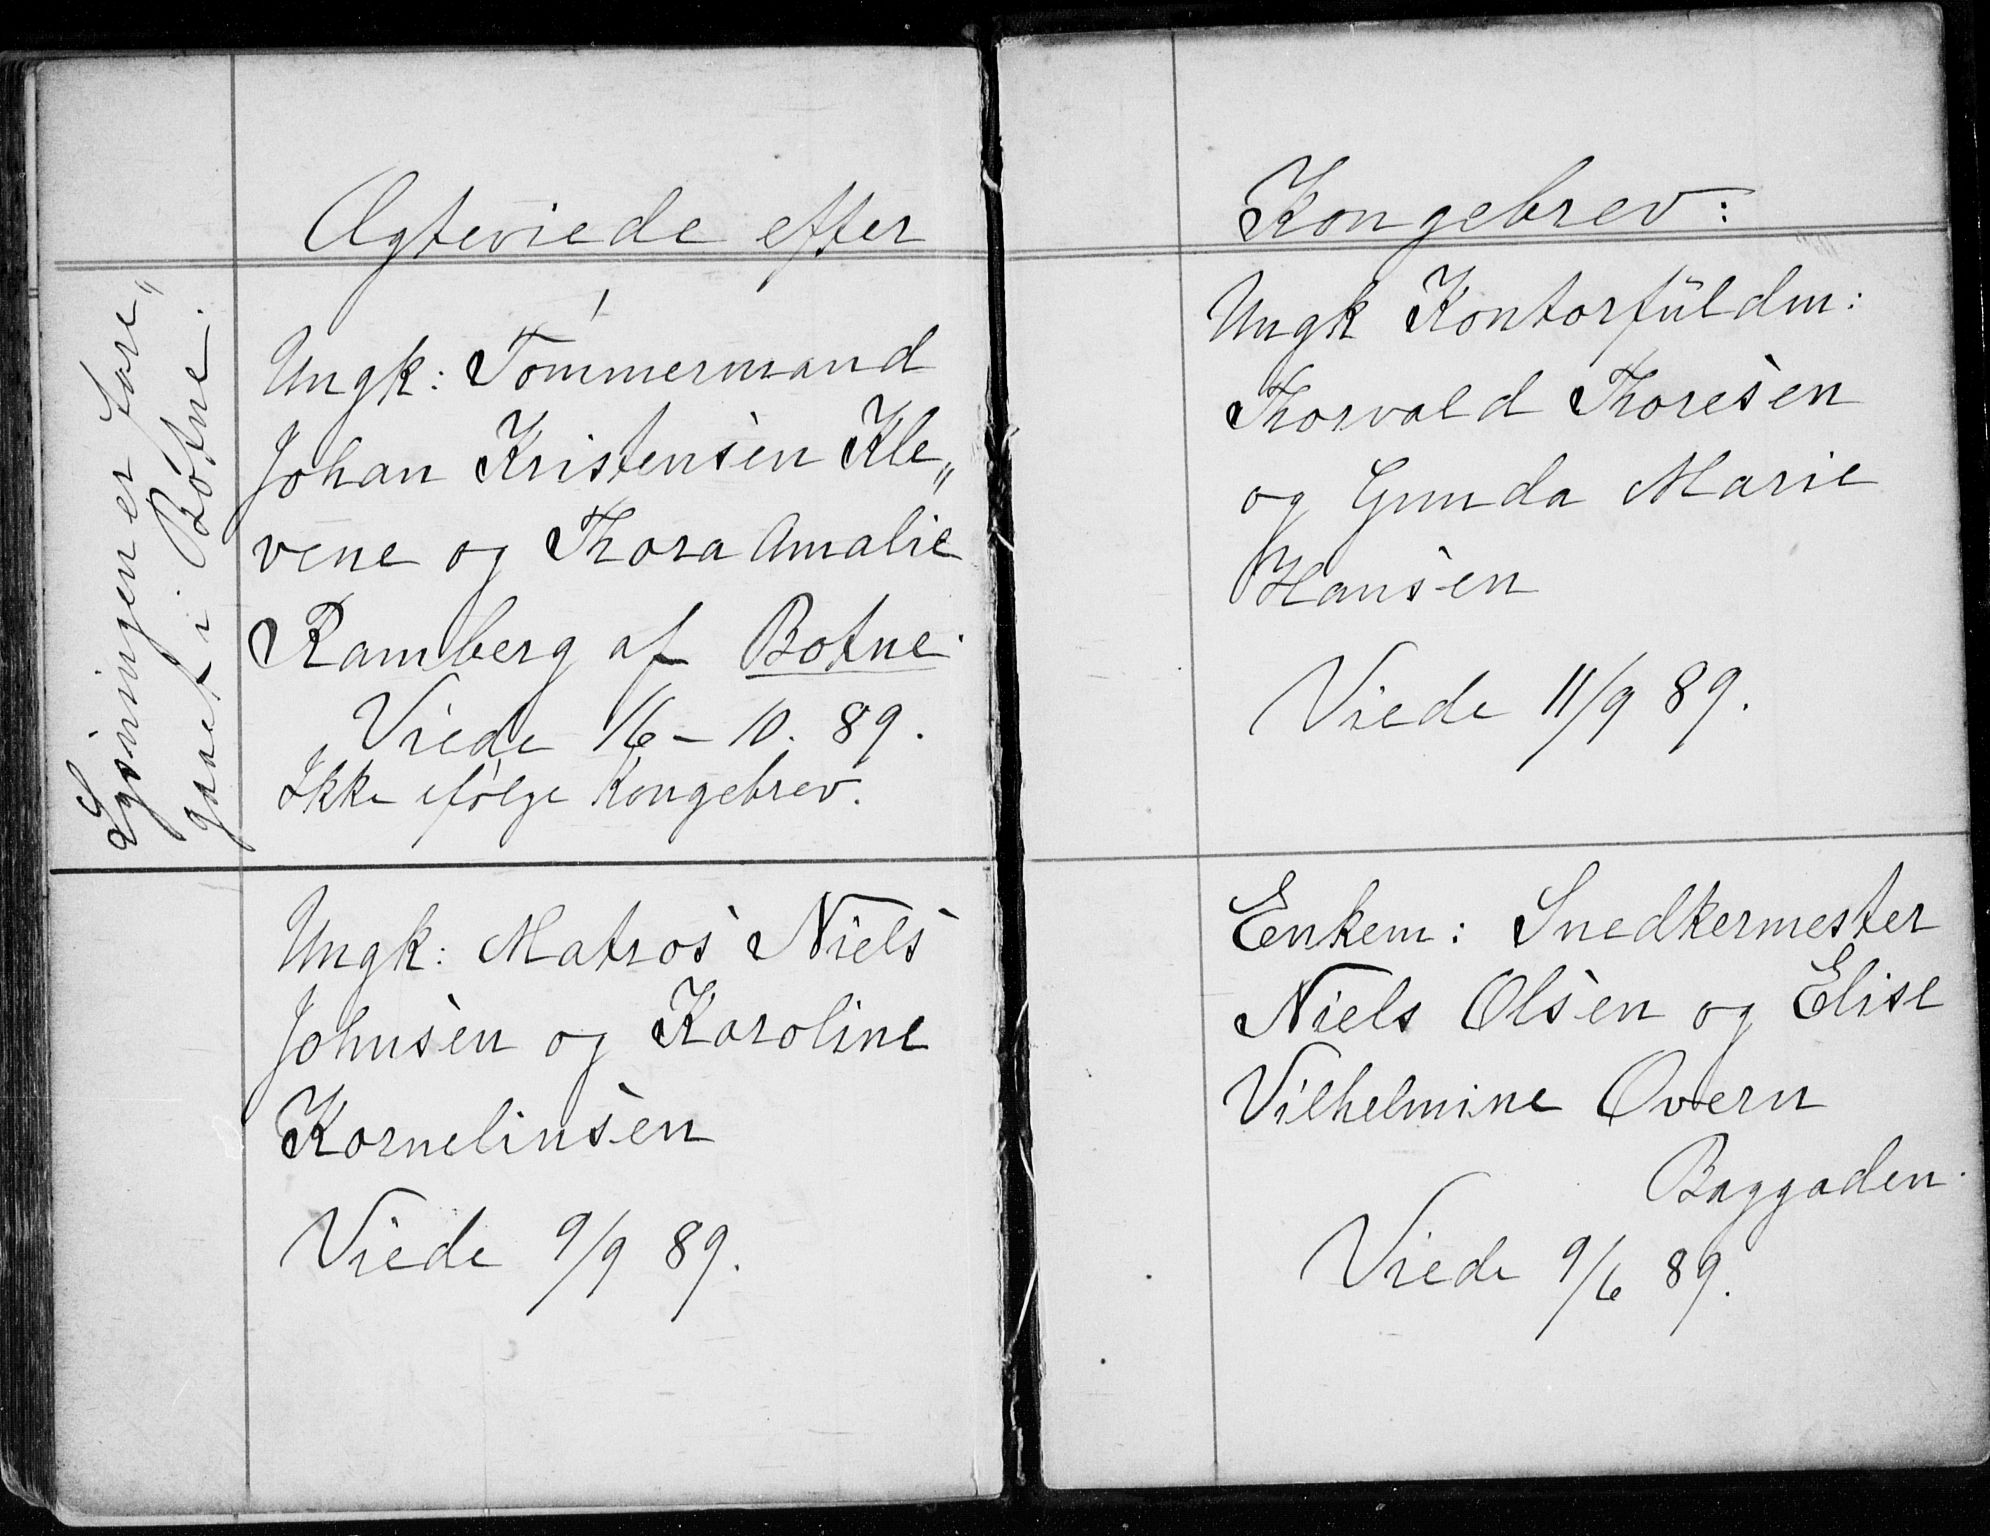 Ægteviede efter
Lysningen er fore„
gaaet i Botne.
Ungk: Tømmermand
Johan Kristensen Kle„
vene og Thora Amalie
Ramberg af Botne.
Viede 16 – 10. 89.
Ikke ifølge Kongebrev.
Ungk: Matros Niels
Johnsen og Karoline
Kornelinsen
Viede 9/9 89.
Kongebrev:
Ungk Kontorfuldm:
Thorvald Thoresen
og Gunda Marie
Hansen
Viede 11/9 89.
Enkem: Snedkermester
Niels Olsen og Elise
Vilhelmine Overn
Baggaden.
Viede 9/6 89.